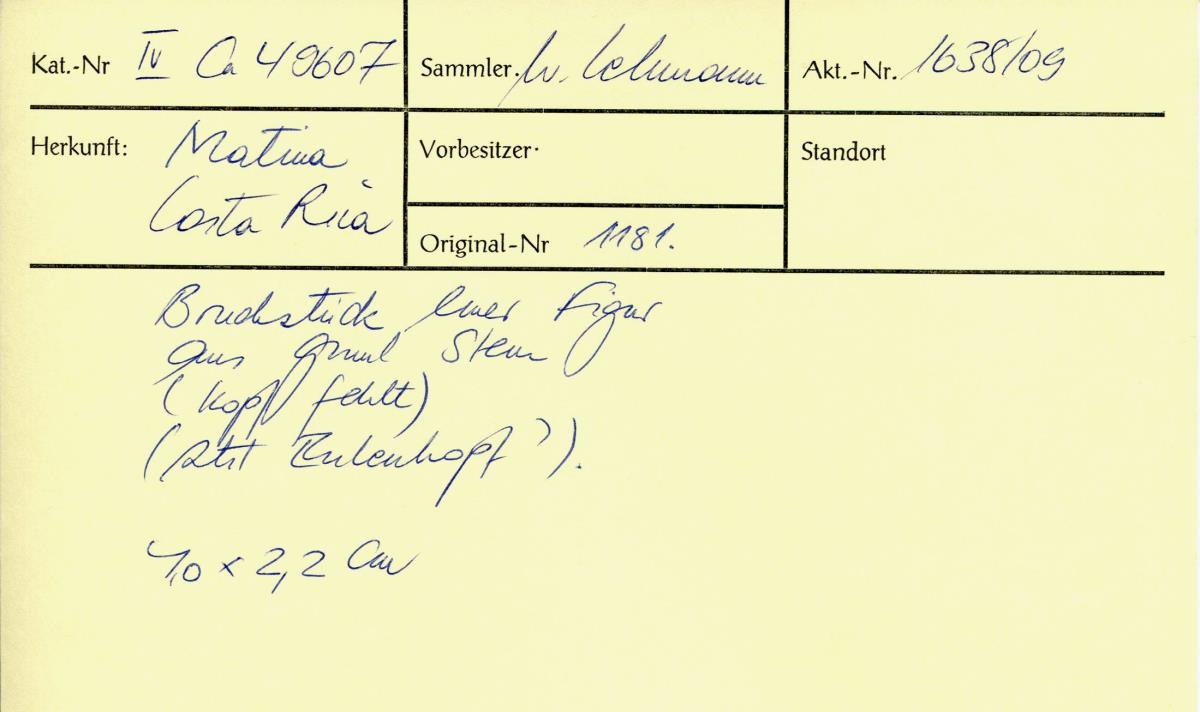 Kat.-Nr IV Ca 49607
Sammler. W. Lehmann
Akt.-Nr. 1638/09
Herkunft: Matina
Costa Rica
Vorbesitzer·
Original-Nr 1181.
Standort
Bruchstück einer Figur
aus Stein
(Kopf fehlt)
( Eulenkopf ?).
x 2,2 cm